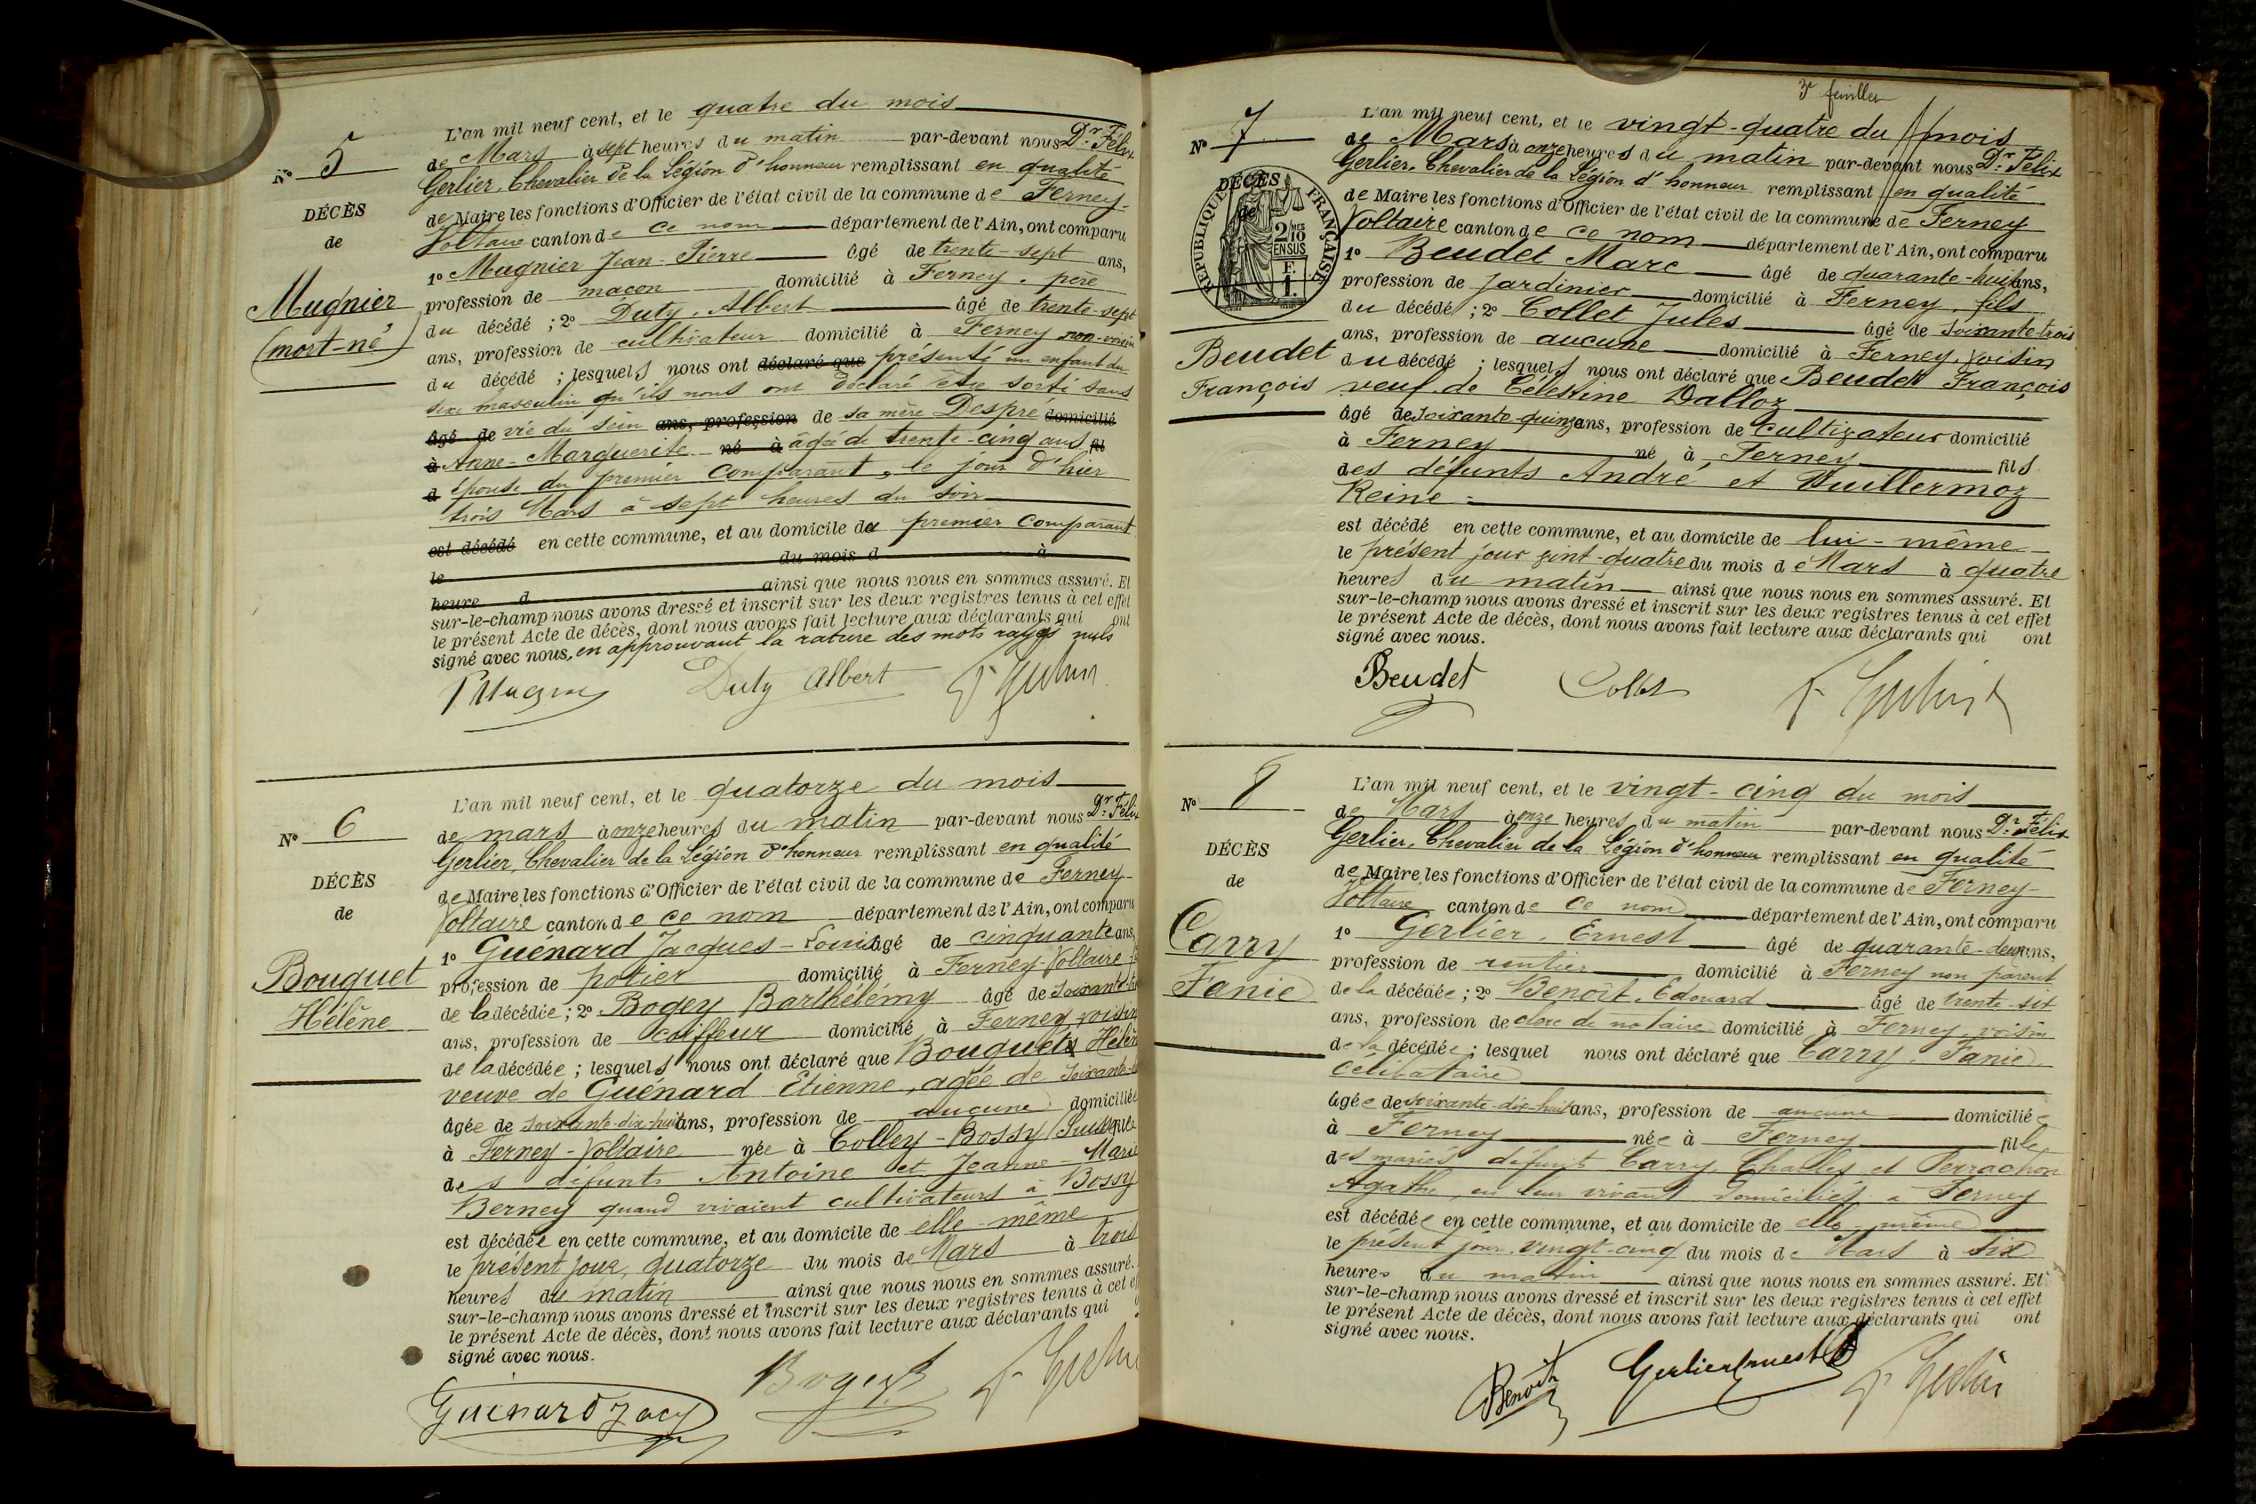 N° 5
DÉCÈS
de
Mugnier
(mort-né)
L'an mil neuf cent, et le quatre du mois
de Mars à sept heures du matin par-devant nous Dr. Félix
Gerlier, Chevalier de la Légion d'honneur remplissant en qualité
de Maire les fonctions d'Officier de l'état civil de la commune de Ferney-
Voltaire canton de ce nom département de l'Ain, ont comparu
1° Mugnier Jean-Pierre âgé de trente-sept ans,
profession de maçon domicilié à Ferney, père
du décédé ; 2° Duty, Albert âgé de trente-sept
ans, profession de cultivateur domicilié à Ferney non-voisin
du décédé ; lesquels nous ont déclaré que présenté un enfant du
sexe masculin qu'ils nous ont déclaré être sorti sans
âgé de vie du sein ans, profession de sa mère Despré domicilié
à Anne-Marguerite né à âgée de trente-cinq ans fil
d épouse du premier comparant, le jour d'hier
trois Mars à sept heures du soir
est décédé en cette commune, et au domicile du premier comparant
le du mois d à
heure d ainsi que nous nous en sommes assuré. Et
sur-le-champ nous avons dressé et inscrit sur les deux registres tenus à cet effet
le présent Acte de décès, dont nous avons fait lecture aux déclarants qui ont
signé avec nous, en approuvant la rature des mots rayés nuls
Duty Albert
N° 6
DÉCÈS
de
Bouquet
Hélène
L'an mil neuf cent, et le quatorze du mois
de mars à onze heures du matin par-devant nous Dr. Félix
Gerlier, Chevalier de la Légion d'honneur remplissant en qualité
de Maire les fonctions d'Officier de l'état civil de la commune de Ferney-
Voltaire canton de ce nom département de l'Ain, ont comparu
1° Guénard Jacques-Louis âgé de cinquante ans,
profession de potier domicilié à Ferney-Voltaire
de la décédée ; 2° Bogey Barthélémy âgé de soixante
ans, profession de coiffeur domicilié à Ferney voisin
de la décédée ; lesquels nous ont déclaré que Bouquet Hélène
veuve de Guénard Etienne, agée de soixante
âgée de soixante-dix-huit ans, profession de aucune domiciliée
à Ferney-Voltaire née à Colley-Bossy (Suisse) fille
des défunts Antoine et Jeanne-Marie
Berney quand vivaient cultivateurs à Bossy
est décédée en cette commune, et au domicile de elle-même
le présent jour, quatorze du mois de Mars à trois
heures du matin ainsi que nous nous en sommes assuré.
sur-le-champ nous avons dressé et inscrit sur les deux registres tenus à cet
le présent Acte de décès, dont nous avons fait lecture aux déclarants qui
signé avec nous.
Guénard Jacq
Bogey B
3e feuillet
N° 7
DÉCÈS
de
RÉPUBLIQUE FRANÇAISE
2/10 EN SUS
Beudet
François
L'an mil neuf cent, et le vingt-quatre du mois
de Mars à onze heures du matin par-devant nous Dr. Félix
Gerlier, Chevalier de la Légion d'honneur remplissant en qualité
de Maire les fonctions d'Officier de l'état civil de la commune de Ferney
Voltaire canton de ce nom département de l'Ain, ont comparu
1° Beudet Marc âgé de quarante-huit ans,
profession de Jardinier domicilié à Ferney, fils
du décédé ; 2° Collet Jules âgé de soixante-trois
ans, profession de aucune domicilié à Ferney, voisin
du décédé ; lesquels nous ont déclaré que Beudet François
veuf de Célestine Dalloz
âgé de soixante-quinze ans, profession de Cultivateur domicilié
à Ferney né à Ferney fils
des défunts André et Vuillermoz
Reine
est décédé en cette commune, et au domicile de lui-même
le présent jour vint-quatre du mois de Mars à quatre
heures du matin ainsi que nous nous en sommes assuré. Et
sur-le-champ nous avons dressé et inscrit sur les deux registres tenus à cet effet
le présent Acte de décès, dont nous avons fait lecture aux déclarants qui ont
signé avec nous.
Beudet Collet
N° 8
DÉCÈS
de
Carry
Fanie
L'an mil neuf cent, et le vingt-cinq du mois
de Mars à onze heures du matin par-devant nous Dr. Félix
Gerlier, Chevalier de la Légion d'honneur remplissant en qualité
de Maire les fonctions d'Officier de l'état civil de la commune de Ferney-
Voltaire canton de ce nom département de l'Ain, ont comparu
1° Gerlier, Ernest âgé de quarante-deux ans,
profession de rentier domicilié à Ferney non parent
de la décédée ; 2° Benoît, Edouard âgé de trente-six
ans, profession de clerc de notaire domicilié à Ferney, voisin
de la décédée ; lesquel nous ont déclaré que Carry, Fanie
célibataire
âgée de soixante-dix-huit ans, profession de aucune domiciliée
à Ferney née à Ferney fille
des mariés défunt Carry, Charles et Perrachon
Agathe, en leur vivant domiciliés à Ferney
est décédée en cette commune, et au domicile de elle-même
le présent jour vingt-cinq du mois de Mars à six
heures du matin ainsi que nous nous en sommes assuré. Et
sur-le-champ nous avons dressé et inscrit sur les deux registres tenus à cet effet
le présent Acte de décès, dont nous avons fait lecture aux déclarants qui ont
signé avec nous.
Benoît Gerlier Ernest